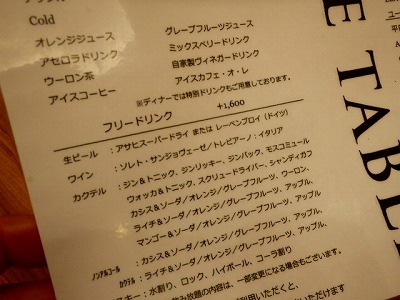 Cold
オレンジジュース
アセロラドリンク
ウーロン茶
アイスコーヒー
グレープフルーツジュース
ミックスベリードリンク
自家製ヴィネガードリンク
アイスカフェ・オ・レ
※ディナーでは特別ドリンクもご用意しております。
フリードリンク +1,600
生ビール :アサヒスーパードライ または レーベンブロイ (ドイツ)
ワイン :ソレト・サンジョヴェーゼ/トレビアーノ:イタリア
カクテル :ジン&トニック、ジンリッキー、ジンバック、モスコミュール
ウォッカ&トニック、スクリュードライバー、シャンディガフ
カシス&ソーダ/オレンジ/グレープフルーツ、ウーロン、
ライチ&ソーダ/オレンジ/グレープフルーツ、アップル、
マンゴー&ソーダ/オレンジ/グレープフルーツ、アップル、
ノンアルコール :カシス&ソーダ/オレンジ/グレープフルーツ、アップル、
カクテル :ライチ&ソーダ/オレンジ/グレープフルーツ、アップル、
スキー:水割り、ロック、ハイボール、コーラ割り
飲み放題の内容は、一部変更になる場合もございます。
利用いただくと、
いただけます
E TABL